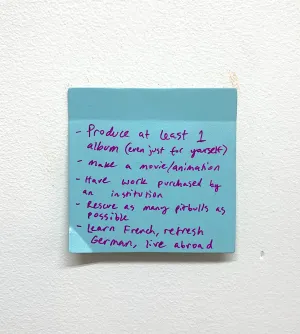 - Produce at least 1
album (even just for yourself)
- Make a movie/animation
- Have work purchased by
an institution
- Rescue as many pitbulls as
possible
- Learn French, refresh
German, live abroad